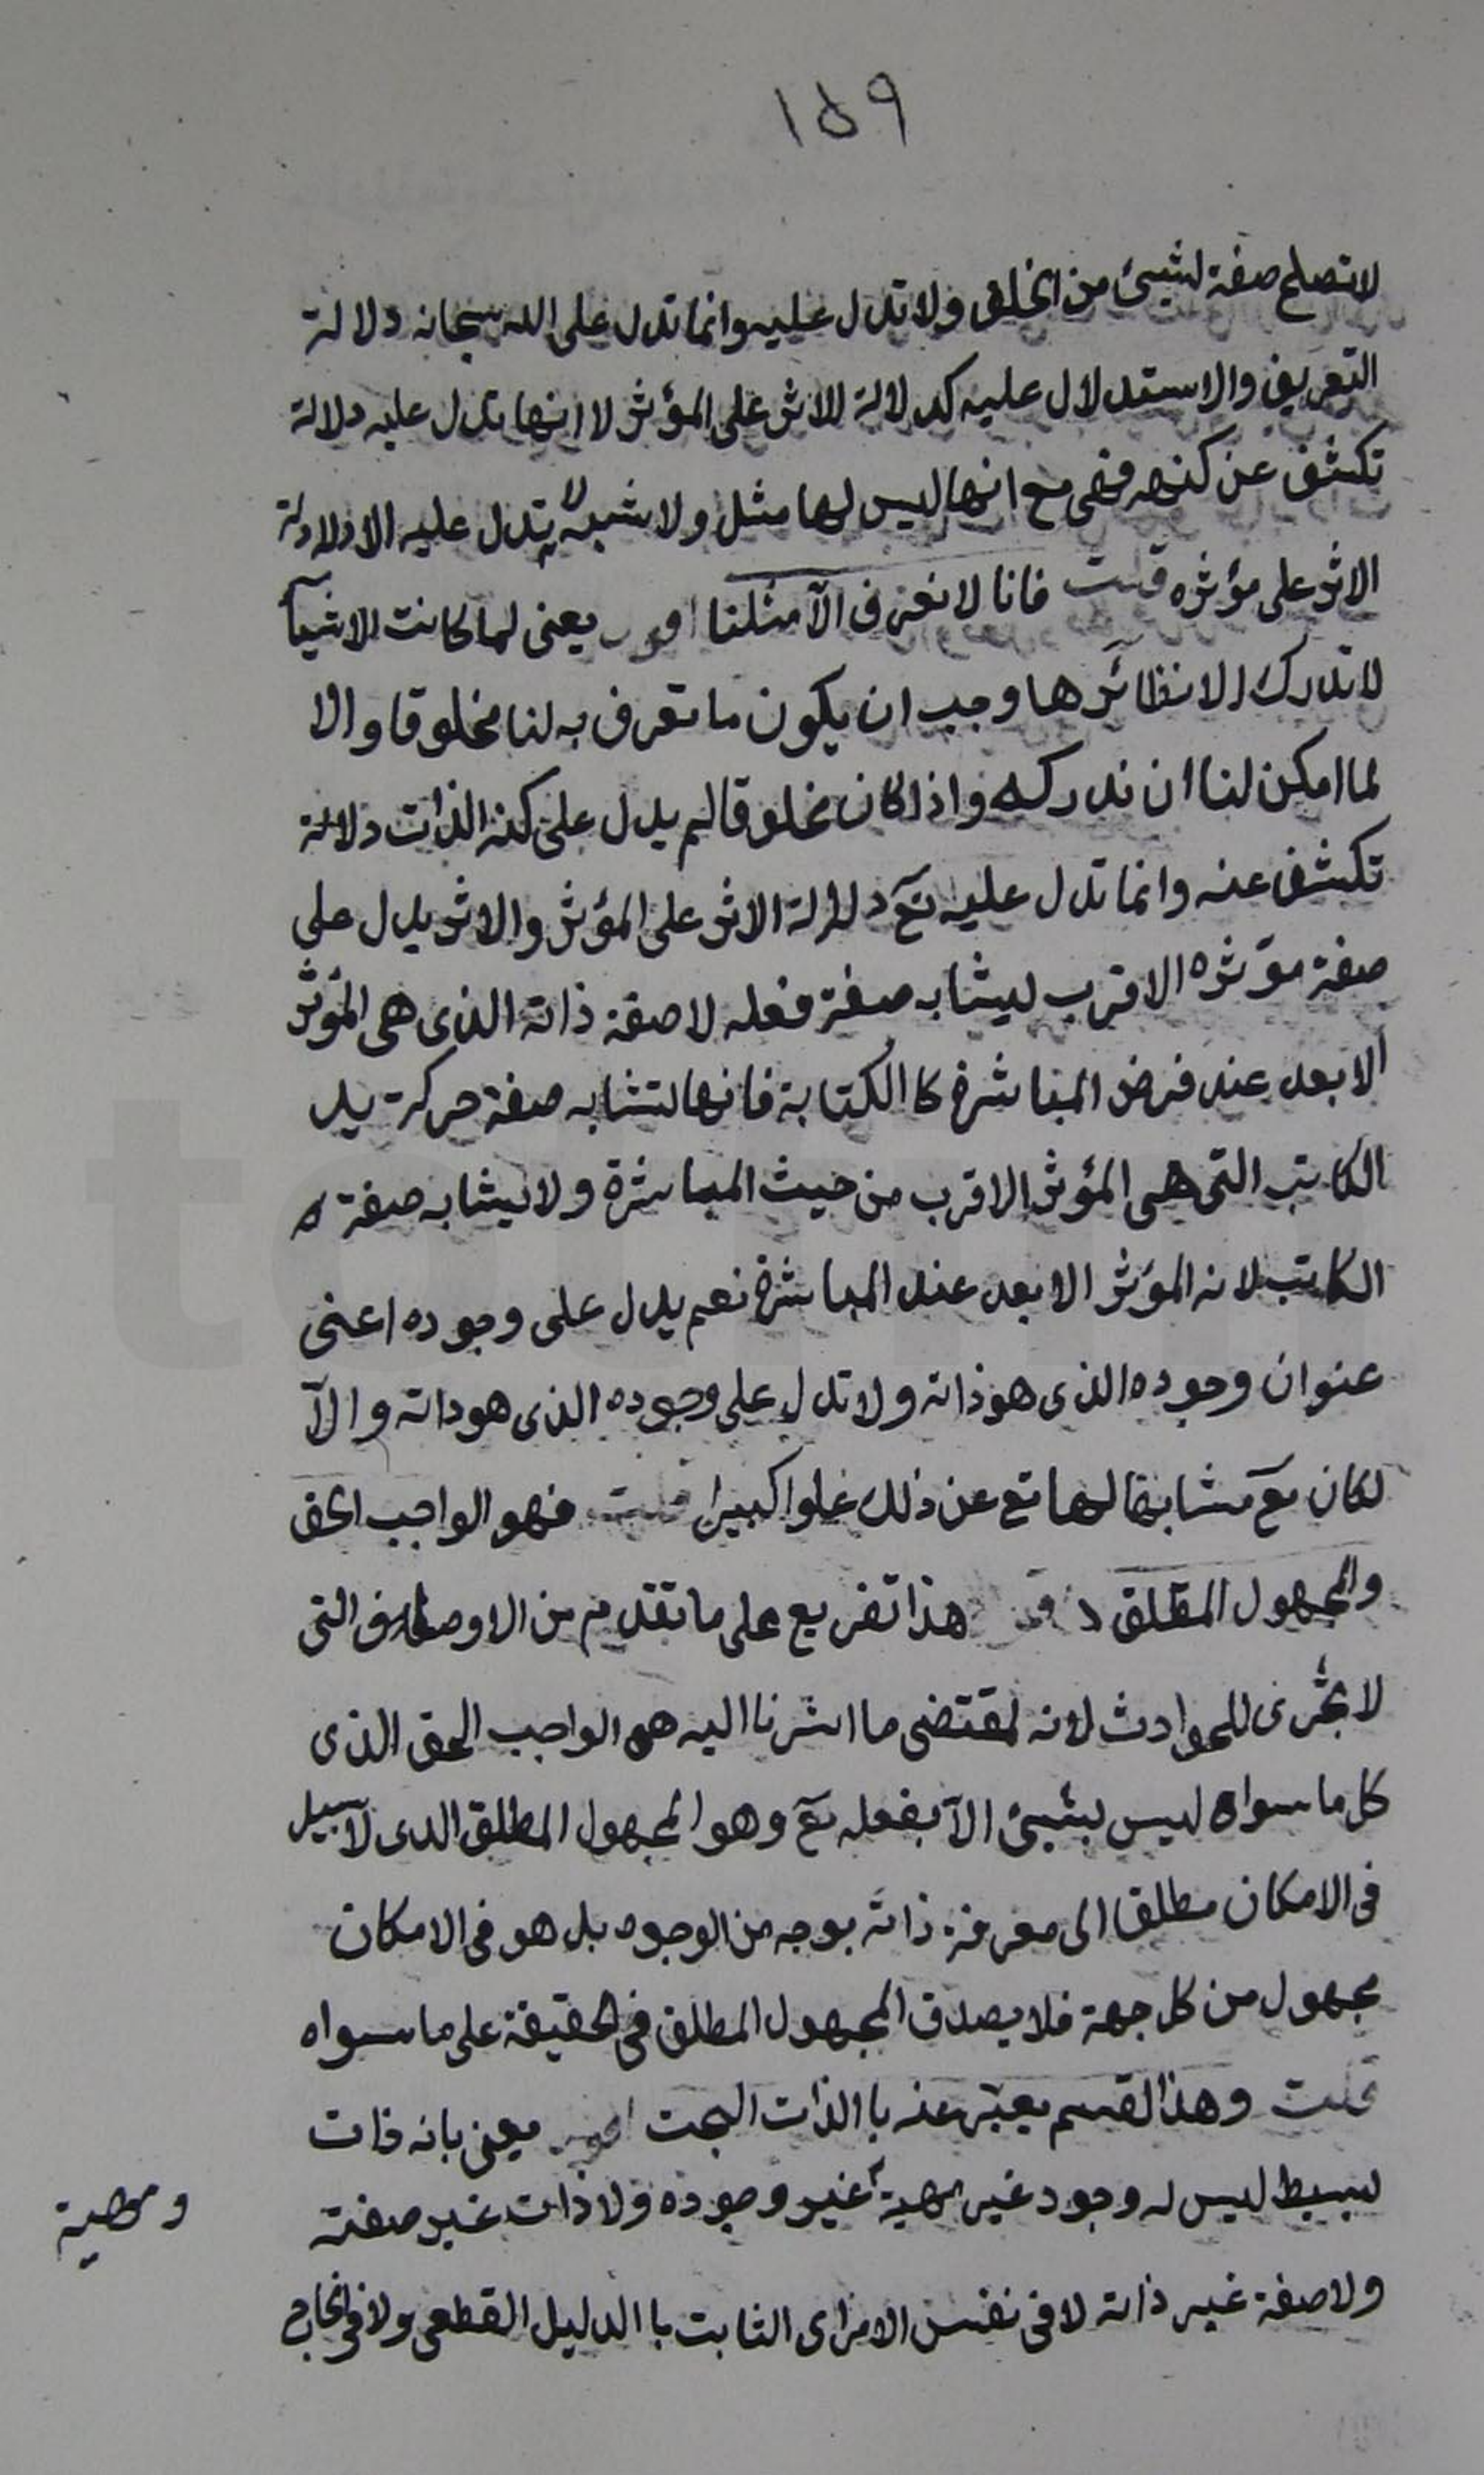 ١٥٩
لا تصلح صفة لشيئ من الخلق ولا تدل عليه وانما تدل على الله سبحانه دلالة
التعريف والاستدلال عليه كدلالة الاثر على المؤثر لا انها تدل عليه دلالة
تكشف عن كنهه فهى مع انها ليس لها مثل ولا شبه لا تدل عليه الا دلالة
الاثر على مؤثره قلت فانا لا نعرف الآ مثلنا اقول يعنى لما كانت الاشيآ
لا تدرك الا نظائرها وجب ان يكون ما تعرف به لنا مخلوقا والا
لما امكن لنا ان ندركه واذا كان مخلوقا لم يدل على كنه الذات دلالة
تكشف عنه وانما تدل عليه تع دلالة الاثر على المؤثر والاثر يدل على
صفة مؤثره الاقرب ليشابه صفة فعله لا صفة ذاته الذى هى المؤثر
الابعد عند فرض المباشرة كا الكتابة فانها لتشابه صفة حركة يد
الكاتب التى هى المؤثر الاقرب من حيث المباشرة ولا يشابه صفة
الكاتب لانه المؤثر الابعد عند المباشرة نعم يدل على وجوده اعنى
عنوان وجوده الذى هو ذاته ولا تدل على وجوده الذى هو ذاته والآ
لكان تع مشابها لها تع عن ذلك علوا كبيرا قلت فهو الواجب الحق
والمجهول المطلق هذا تفريع على ما تقدم من الاوصاف التى
لا تجرى للحوادث لانه لمقتضى ما اشرنا اليه هو الواجب الحق الذى
كل ما سواه ليس بشيئ الآ بفعله تع وهو المجهول المطلق الذى لا سبيل
فى الامكان مطلقا الى معرفة ذاته بوجه من الوجوه بل هو فى الامكان
مجهول من كل جهة فلا يصدق المجهول المطلق فى الحقيقة على ما سواه
قلت وهذا القسم يعبّر عنه با الذات البحت اقول يعنى بانه ذات
بسيط ليس له وجود غير مهية غير وجوده ولا ذات غير صفته
ومهية
ولا صفة غير ذاته لا فى نفس الامر اى الثابت با الدليل القطعى ولا فى الخارج